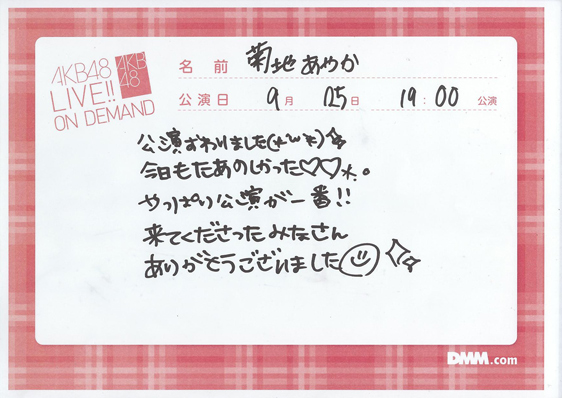 AKB48
LIVE!!
ON DEMAND
AKB
48
名前 菊地あやか
公演日 9月 25日 19:00 公演
公演おわりました(*^w^*)☆
今日もたあのしかった♡♡*。
やっぱり公演が一番!!
来てくださったみなさん
ありがとうございました☺☆
DMM.com